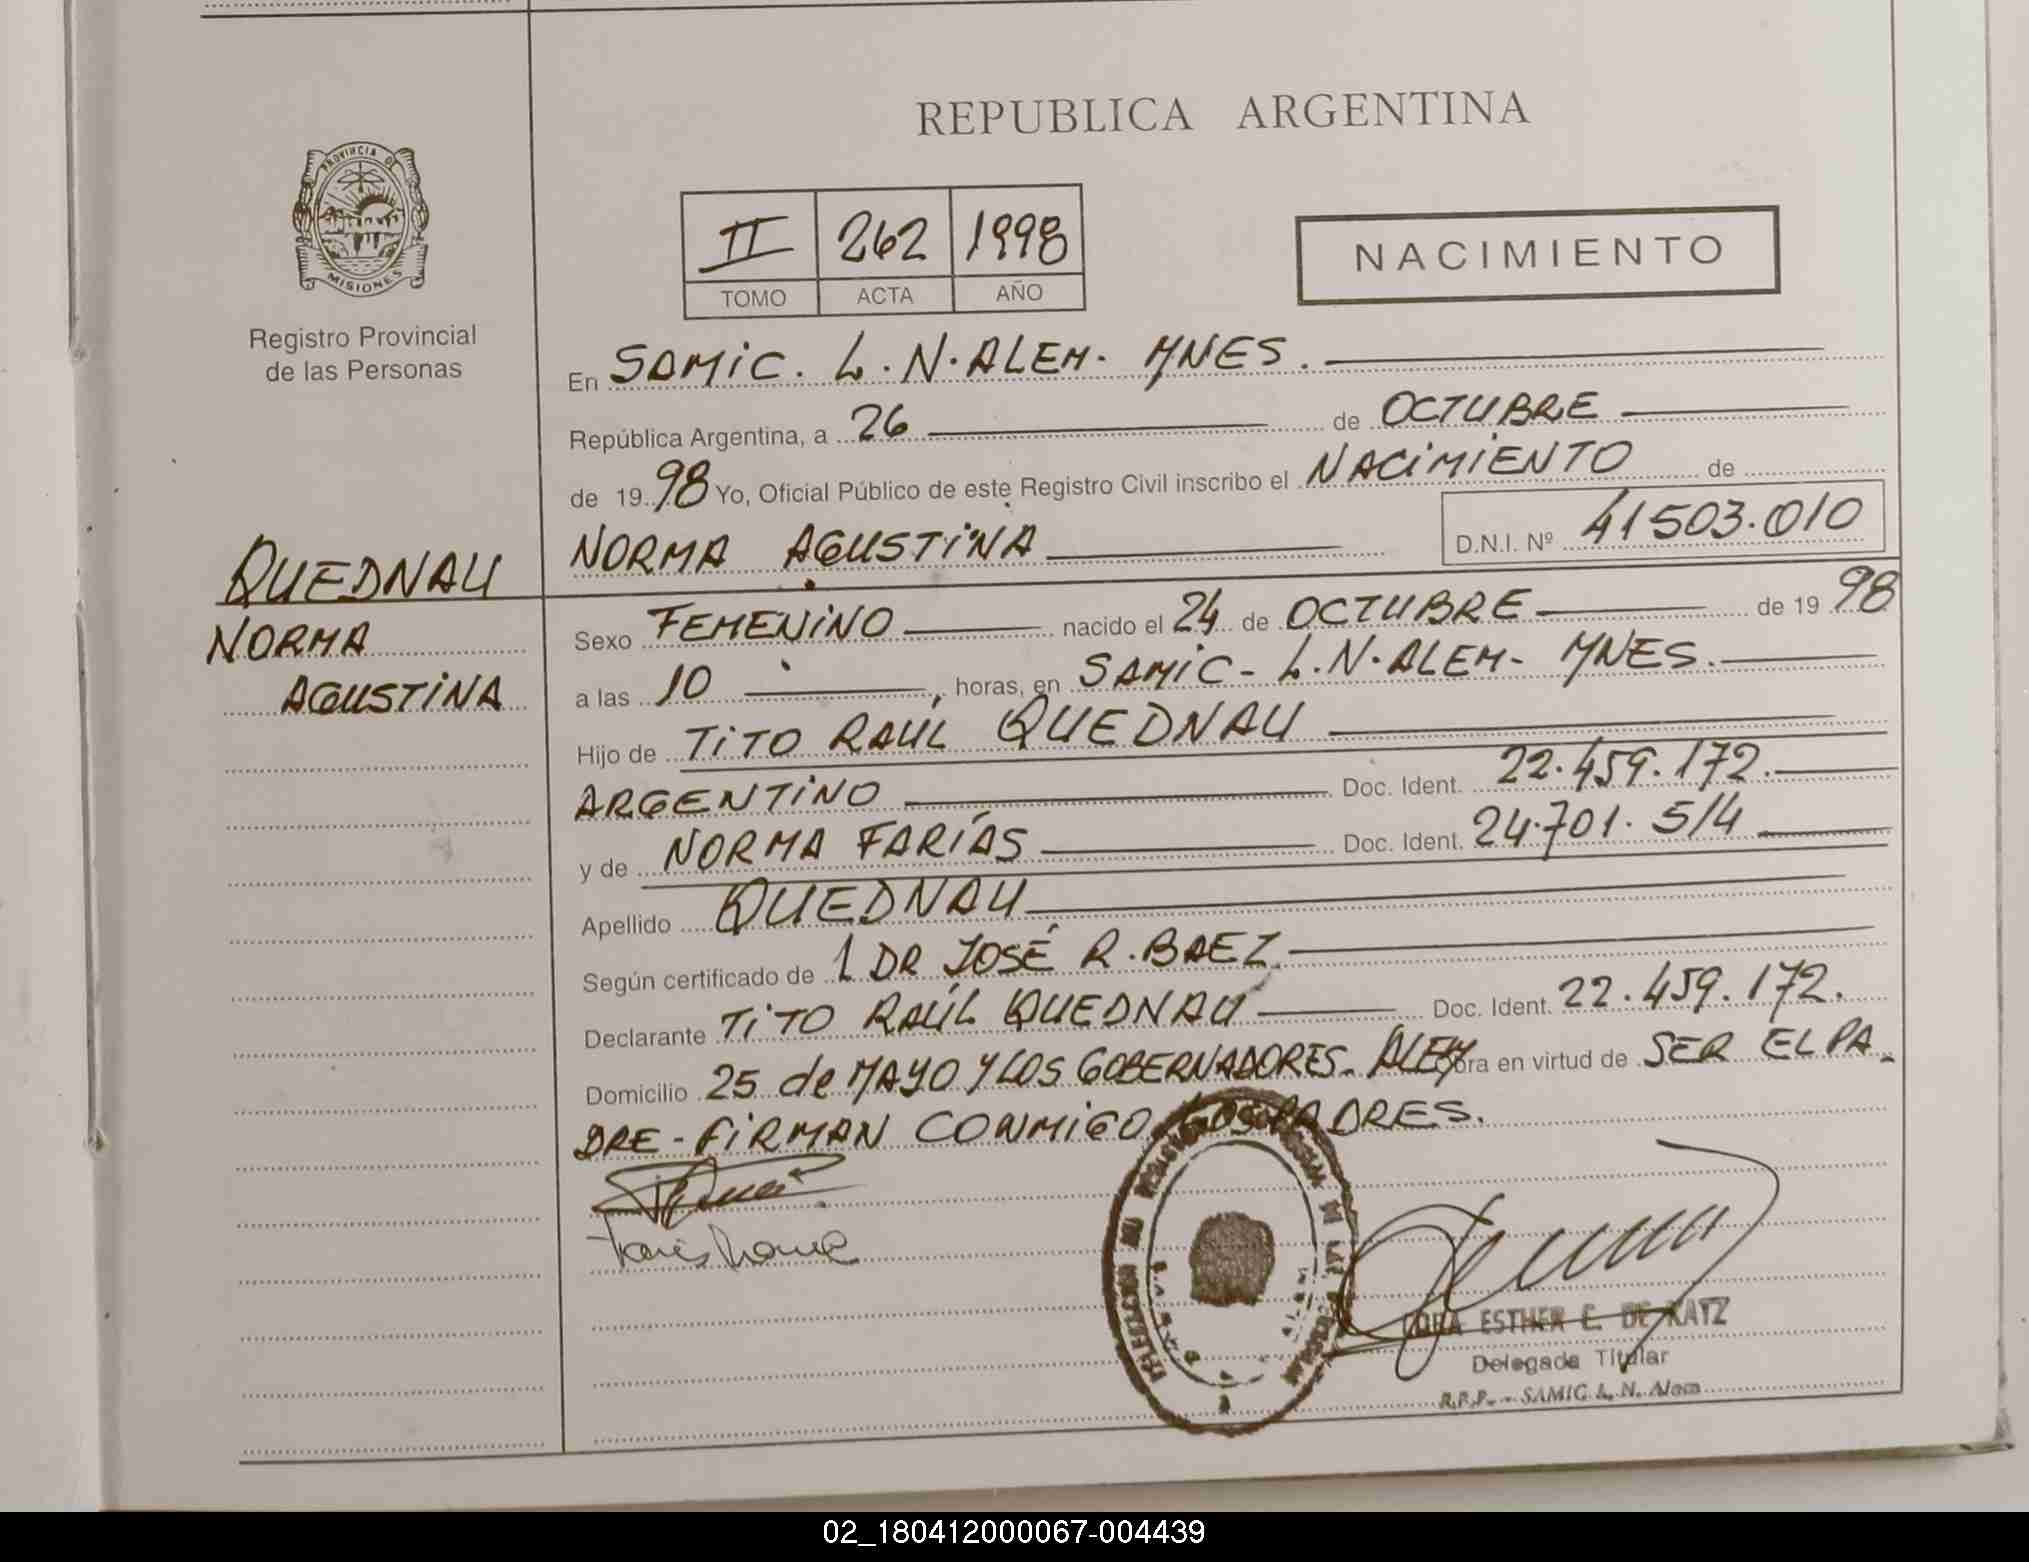 REPUBLICA ARGENTINA
PROVINCIA DE
MISIONES
Registro Provincial
de las Personas
II 262 1998
TOMO ACTA AÑO
NACIMIENTO
En SAMIC. L.N.ALEM- MNES.
República Argentina, a 26 de OCTUBRE
de 1998 Yo, Oficial Público de este Registro Civil inscribo el NACIMIENTO de
NORMA AGUSTINA D.N.I. Nº 41503.010
QUEDNAU
NORMA
AGUSTINA
Sexo FEMENINO nacido el 24 de OCTUBRE de 1998
a las 10 horas, en SAMIC- L.N.ALEM- MNES.
Hijo de TITO RAÚL QUEDNAU
ARGENTINO Doc. Ident. 22.459.172.
y de NORMA FARÍAS Doc. Ident. 24.701.514
Apellido QUEDNAU
Según certificado de 1 DR JOSÉ R. BAEZ
Declarante TITO RAÚL QUEDNAU Doc. Ident. 22.459.172.
Domicilio 25 de MAYO Y LOS GOBERNADORES- ALEM obra en virtud de SER EL PA-
DRE- FIRMAN CONMIGO LOS PADRES.
Farias Norma
ESTHER E. DE KATZ
Delegada Titular
R.P.P. - SAMIC L. N. Alem
02_180412000067-004439